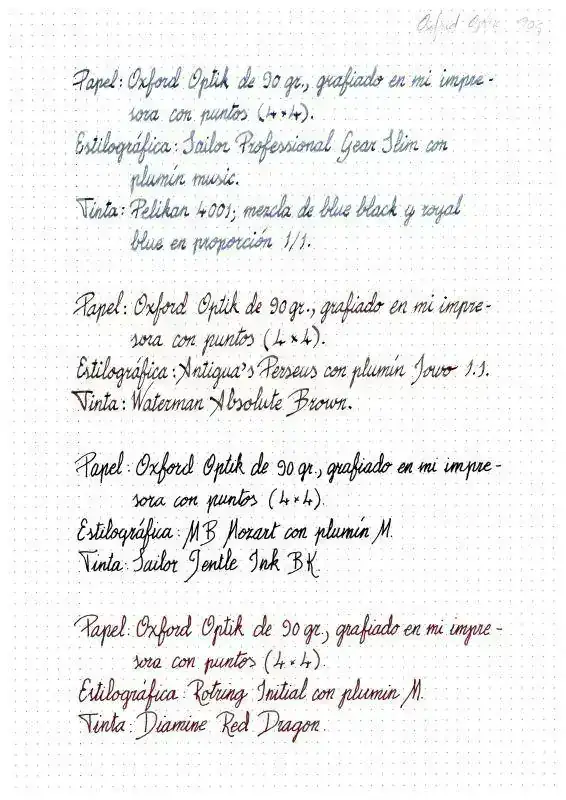 Oxford Optik 90g
Papel: Oxford Optik de 90 gr., grafiado en mi impre-
sora con puntos (4×4).
Estilográfica: Sailor Professional Gear Slim con
plumín music.
Tinta: Pelikan 4001; mezcla de blue black y royal
blue en proporción 1/1.
Papel: Oxford Optik de 90 gr., grafiado en mi impre-
sora con puntos (4×4).
Estilográfica: Antigua's Perseus con plumín Jowo 1.1.
Tinta: Waterman Absolute Brown.
Papel: Oxford Optik de 90 gr., grafiado en mi impre-
sora con puntos (4×4).
Estilográfica: MB Mozart con plumín M.
Tinta: Sailor Jentle Ink BK.
Papel: Oxford Optik de 90 gr., grafiado en mi impre-
sora con puntos (4×4).
Estilográfica: Rotring Initial con plumin M.
Tinta: Diamine Red Dragon.